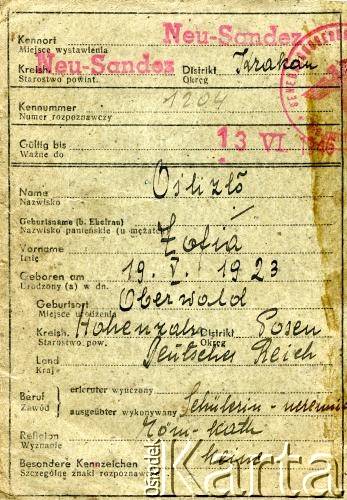 Kennort Neu-Sandez
Miejsce wystawienia
Kreish. Neu-Sandez Distrikt Krakau
Starostwo powiat. Okręg
Kennummer 1204
Numer rozpoznawczy
Gültig bis 13 VI. 1946
Ważne do
Name Oślizło
Nazwisko
Geburtsname (b. Ehefrau)
Nazwisko panieńskie (u mężatek)
Vorname Zofia
Imię
Geboren am 19. V. 1923
Urodzony (a) w dn.
Geburtsort Oberwald
Miejsce urodzenia
Kreish. Hohensalza Distrikt Posen
Starostwo pow. Okręg
Land Deutsches Reich
Kraj
Beruf erlernter wyuczony
Zawód ausgeübter wykonywany Schülerin - uczennica
Religion röm-kath
Wyznanie
Besondere Kennzeichen keine
Szczególne znaki rozpoznawcze
Ośrodek Karta